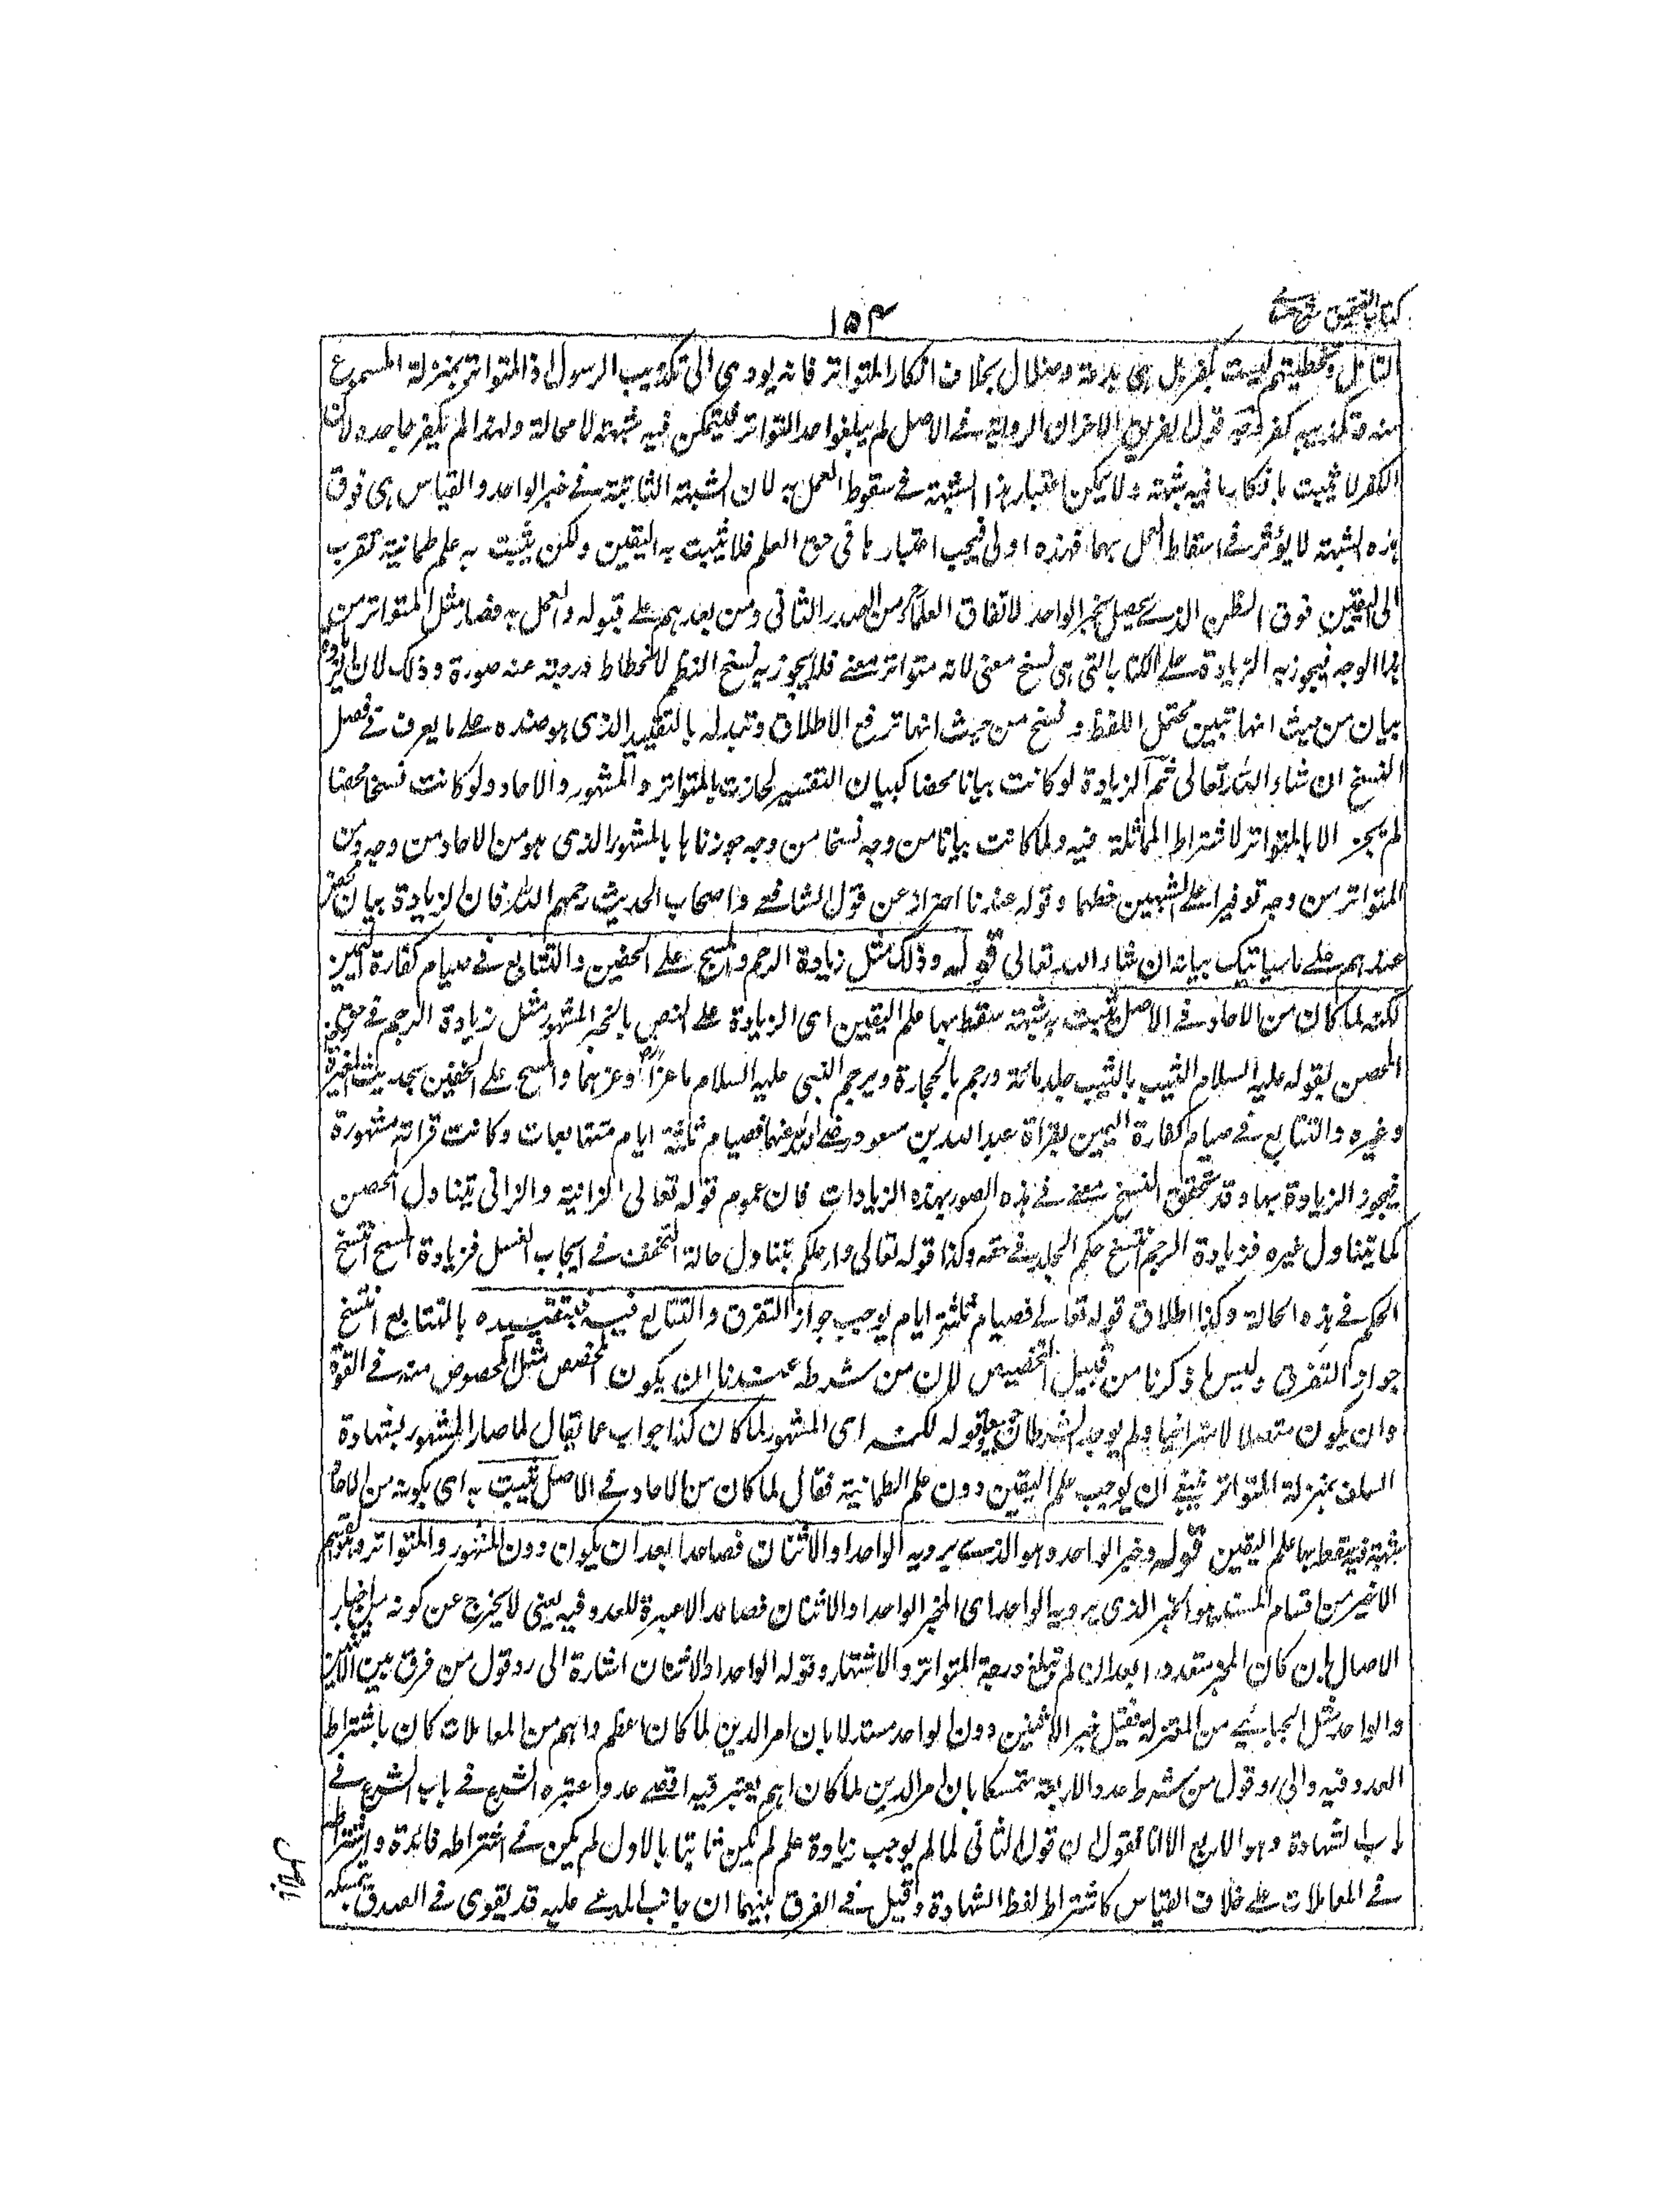 كتاب التحقيق
١٥٤
التامل وتخطيتهم ليست بكفر بل هى بدعة وضلال بخلاف انكار المتواتر فانه يودى الى تكذيب الرسول اذ المتواتر بمنزلة المسموع
منه وتكذيبه كفر وجه قول الفريق الاخر ان الرواية فى الاصل لم يبلغوا حد التواتر فيتمكن فيه شبهة لا محالة ولهذا لم يكفر جاحده ولان
الكفر لا يثبت بانكار ما فيه شبهة ولا يمكن اعتبار هذا الشبهة فى سقوط العمل به لان الشبهة الثابتة فى خبر الواحد والقياس هى فوق
هذه الشبهة لا يؤثر فى اسقاط العمل بهما فهذه اولى فيجب اعتبارها فى حق العلم فلا يثبت به اليقين ولكن يثبت به علم طمانية تقرب
الى اليقين فوق الظن الذى يحصل بخبر الواحد لاتفاق العلماء من الصدر الثانى ومن بعدهم على قبوله والعمل به فصار مثل المتواتر من
هذا الوجه فيجوز به الزيادة على الكتاب التى هى نسخ معنى لانه متواتر معنى فلا يجوز به نسخ النظم لانحطاط درجته عنه صورة وذلك لان الزيادة
بيان من حيث انها تبين محتمل اللفظ ونسخ من حيث انها ترفع الاطلاق وتبدله بالتقييد الذى هو ضده على ما يعرف فى فصل
النسخ ان شاء الله تعالى ثم الزيادة لو كانت بيانا محضا كبيان التفسير لجازت بالمتواتر والمشهور والاحاد ولو كانت نسخا محضا
لم يجز الا بالمتواتر لاشتراط المماثلة فيه ولما كانت بيانا من وجه نسخا من وجه جوزناها بالمشهور الذى هو من الاحاد من وجه ومن
المتواتر من وجه توفيرا على الشبهين حظهما وقوله عندنا احتراز عن قول الشافعى واصحاب الحديث رحمهم الله فان الزيادة بيان محض
عندهم على ما سياتيك بيانه ان شاء الله تعالى قوله وذلك مثل زيادة الرجم والمسح على الخفين والتتابع فى صيام كفارة اليمين
لكنه لما كان من الاحاد فى الاصل ثبت به شبهة سقط بها علم اليقين اى الزيادة على النص بالخبر المشهور مثل زيادة الرجم فى حق
المحصن لقوله عليه السلام الثيب بالثيب جلد مائة ورجم بالحجارة وبرجم النبى عليه السلام ماعزا وغيرهما والمسح على الخفين بحديث المغيرة
وغيره والتتابع فى صيام كفارة اليمين بقراة عبد الله بن مسعود رضى الله عنهما فصيام ثلثة ايام متتابعات وكانت قراته مشهورة
فيجوز الزيادة بها وقد تحقق النسخ معنى فى هذه الصور بهذه الزيادات فان عموم قوله تعالى الزانية والزانى يتناول المحصن
كما يتناول غيره فزيادة الرجم نتسخ حكم الجلد فى حقه وكذا قوله تعالى وارجلكم يتناول حالة التخفف فى ايجاب الغسل فزيادة المسح انتسخ
الحكم فى هذه الحالة وكذا اطلاق قوله تعالى فصيام ثلثة ايام يوجب جواز التفرق والتتابع فيه فبتقييده بالتتابع انتسخ
جواز التفرق وليس ما ذكرنا من قبيل التخصيص لان من شرطه عندنا ان يكون المخصص مثل المخصوص منه فى القوة
وان يكون متصلا لا متراخيا ولم يوجد الشرطان جميعا وقوله لكنه اى المشهور لما كان كذا جواب عما يقال لما صار المشهور بشهادة
السلف بمنزلة المتواتر ينبغى ان يوجب علم اليقين دون علم الطمانية فقال لما كان من الاحاد فى الاصل ثبت به اى بكونه من الاحاد
شبهة فيه يقط بها علم اليقين قوله وخبر الواحد وهو الذى يرويه الواحد او الاثنان فصاعدا بعد ان يكون دون المشهور والمتواتر
الاخير من اقسام المسند هو الخبر الذى يرويه الواحد اى المخبر الواحد او الاثنان فصاعدا لا عبرة للعدد فيه يعنى لا يخرج عن كونه من اخبار
الاحاد ان كان المخبر متعددا بعد ان لم تبلغ درجة المتواتر والاشتهار وقوله الواحد او الاثنان اشارة الى رد قول من فرق بين الاثنين
والواحد مثل الجبائى من المعتزلة فقبل خبر الاثنين دون الواحد مستدلا بان امر الدين لما كان اعظم واهم من المعاملات كان باشتراط
العدد فيه والى رد قول من شرط عدد الاربعة متمسكا بان امر الدين لما كان اهم يعتبر فيه اقصى عدد اعتبره الشرع فى باب الشرع فى
باب الشهادة وهو الاربع الا انا نقول ان قول الثانى لما لم يوجب زيادة علم لم يكن ثابتا بالاول لم يكن فى اشتراطه فائدة واشتراطه
فى المعاملات على خلاف القياس كاشتراط لفظ الشهادة وقيل فى الفرق بينهما ان جانب المدعى عليه قد يقوى فى الصدق بتمسكه